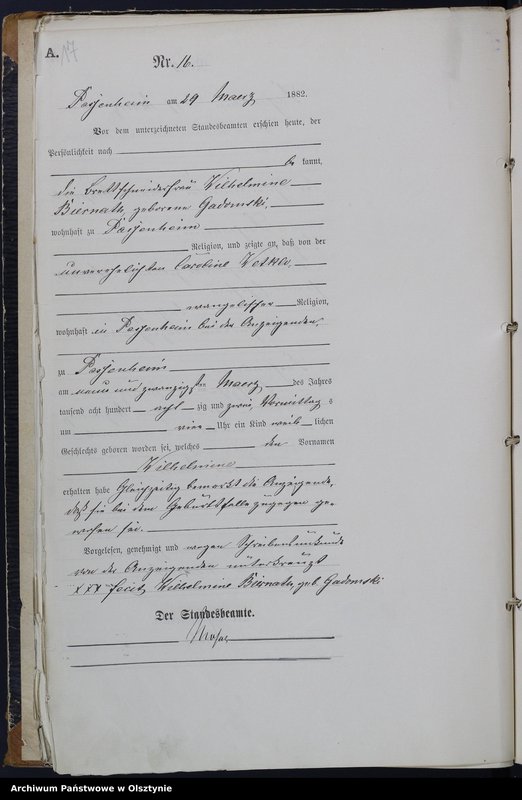 A. 17
Nr. 16.
Passenheim am 29 Maerz 1882.
Vor dem unterzeichneten Standesbeamten erschien heute, der
Persönlichkeit nach
be kannt,
die Brettschneiderfrau Wilhelmine
Biernath, geborene Gadomski,
wohnhaft zu Passenheim
Religion, und zeigte an, daß von der
unverehelichten Caroline
evangelischer Religion,
wohnhaft in Passenheim bei der Anzeigenden,
zu Passenheim
am neun und zwanzigsten Maerz des Jahres
tausend acht hundert acht zig und zwei, Vormittag s
um vier Uhr ein Kind weib lichen
Geschlechts geboren worden sei, welches den Vornamen
Wilhelmiene
erhalten habe Gleichzeitig bemerkt die Anzeigende,
daß sie bei dem Geburtsfalle zugegen ge-
wesen sei.
Vorgelesen, genehmigt und wegen Schreibensunkunde
von der Anzeigenden unterkreuzt
XXX fecit Wilhelmine Biernath, geb. Gadomski
Der Standesbeamte.
Archiwum Państwowe w Olsztynie